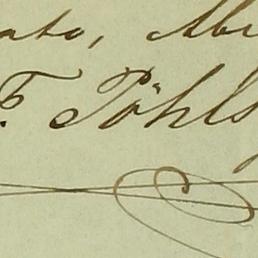 ato, Abu
F. Pöhls